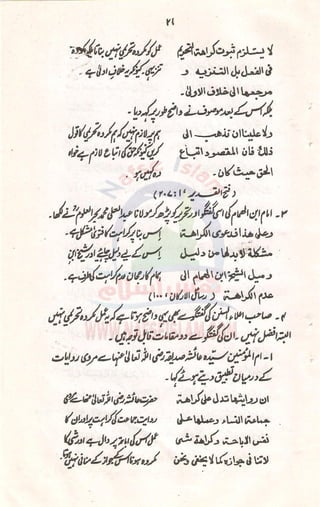 ۲۸
لا يستلزم ثبوت كراهة التحريم عمل کو مکروہ تحریمی نہیں بناتا بلکہ مکروہ
فى الفعل بل التنزيه و تنزیہی۔ کیونکہ یہ خلاف اولیٰ ہے۔
مرجعها الى خلاف الاولى۔
بلکہ اس کے بعد موصوف نے واضح طور پر کہہ دیا۔
ولا علينا ان نذهب الى ہم پر لازم نہیں کہ ہم مکروہ تحریمی کا قول
ذلك فان المقصود اتباع کریں کیونکہ حق کی اتباع لازم ہے خواہ
الحق حيث كان۔ وہ کہیں ہو۔
فتح القدیر ۱: ۳۰۷
۳۔ امام ابن الہمام کی اس گفتگو اور تحریر کو پڑھ کر مولانا عبدالعلی محمد بحر العلوم نے لکھا۔
وعلى هذا فدعوى الكراهة اس بنا پر کراہت کا فتویٰ مشکل ہے۔
مشكلة لا بد لها من دليل اس کے لیے دلیل چاہیے اور شیخ ابن
وميل الشيخ ابن الهمام الى ہمام کا رجحان عدم کراہت کی طرف ہے۔
عدم الكراهة (رسائل الارکان، ۱۰۰)
۴۔ صاحب اعلاء السنن کی گفتگو سے بھی یہی واضح ہوتا ہے کہ یہ عمل مکروہ تحریمی نہیں
البتہ افضل نہیں۔ ان کی گفتگو سے دو مقامات قابل توجہ ہیں۔
۱۔ ام المؤمنین سیدہ عائشہ صدیقہ رضی اللہ تعالیٰ عنہا سے مروی روایات
کے درمیان تطبیق دیتے ہوئے کہا۔
ان روايتها تدل على كراهة حضرت عائشہ رضی اللہ تعالیٰ عنہا سے
جماعة النساء وعملها على روایت جماعت کی کراہت پر اور ان کا
نفس الاباحة وكراهة شىء عمل اس کی اباحت پر دال ہے اور شئی کا
لا تنافى جوازه كما لا يخفى ونحن مکروہ ہونا اس کے جواز کے منافی نہیں ہوتا۔